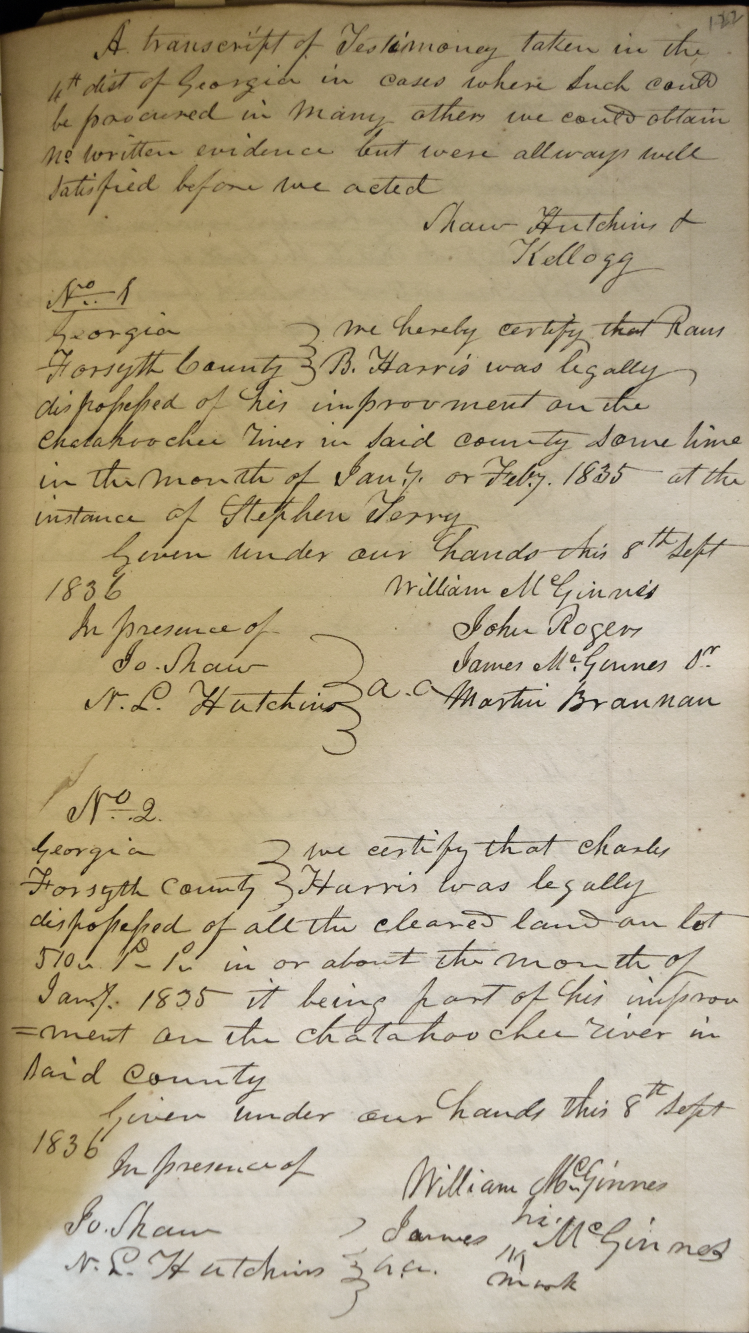 122
A transcript of Testimoney taken in the
4th dist of Georgia in cases where such could
be procured in many others we could obtain
no written evidence but were allways well
satisfied before we acted
Shaw Hutchins &
Kellogg
No. 1
Georgia } we hereby certify that Raus
Forsyth County } B. Harris was legally
dispossessed of his improvment on the
Chatahoochee river in said county some time
in the month of Jany. or Feby. 1835 at the
instance of Stephen Terry
Given under our hands this 8th Sept
1836 William McGinnis
In presence of John Rogers
Jo. Shaw } James McGinnes Sr
N. L. Hutchins } a.a Martin Brannan
No. 2.
Georgia } we certify that Charles
Forsyth County } Harris was legally
dispossessed of all the cleared land on lot
510 in or about the month of
Jany. 1835 it being part of his improv
=ment on the chatahoochee river in
said county
Given under our hands this 8th Sept
1836
In presence of William McGinnes
Jo. Shaw } James his McGinnes
N. L. Hutchins } a.a. mark